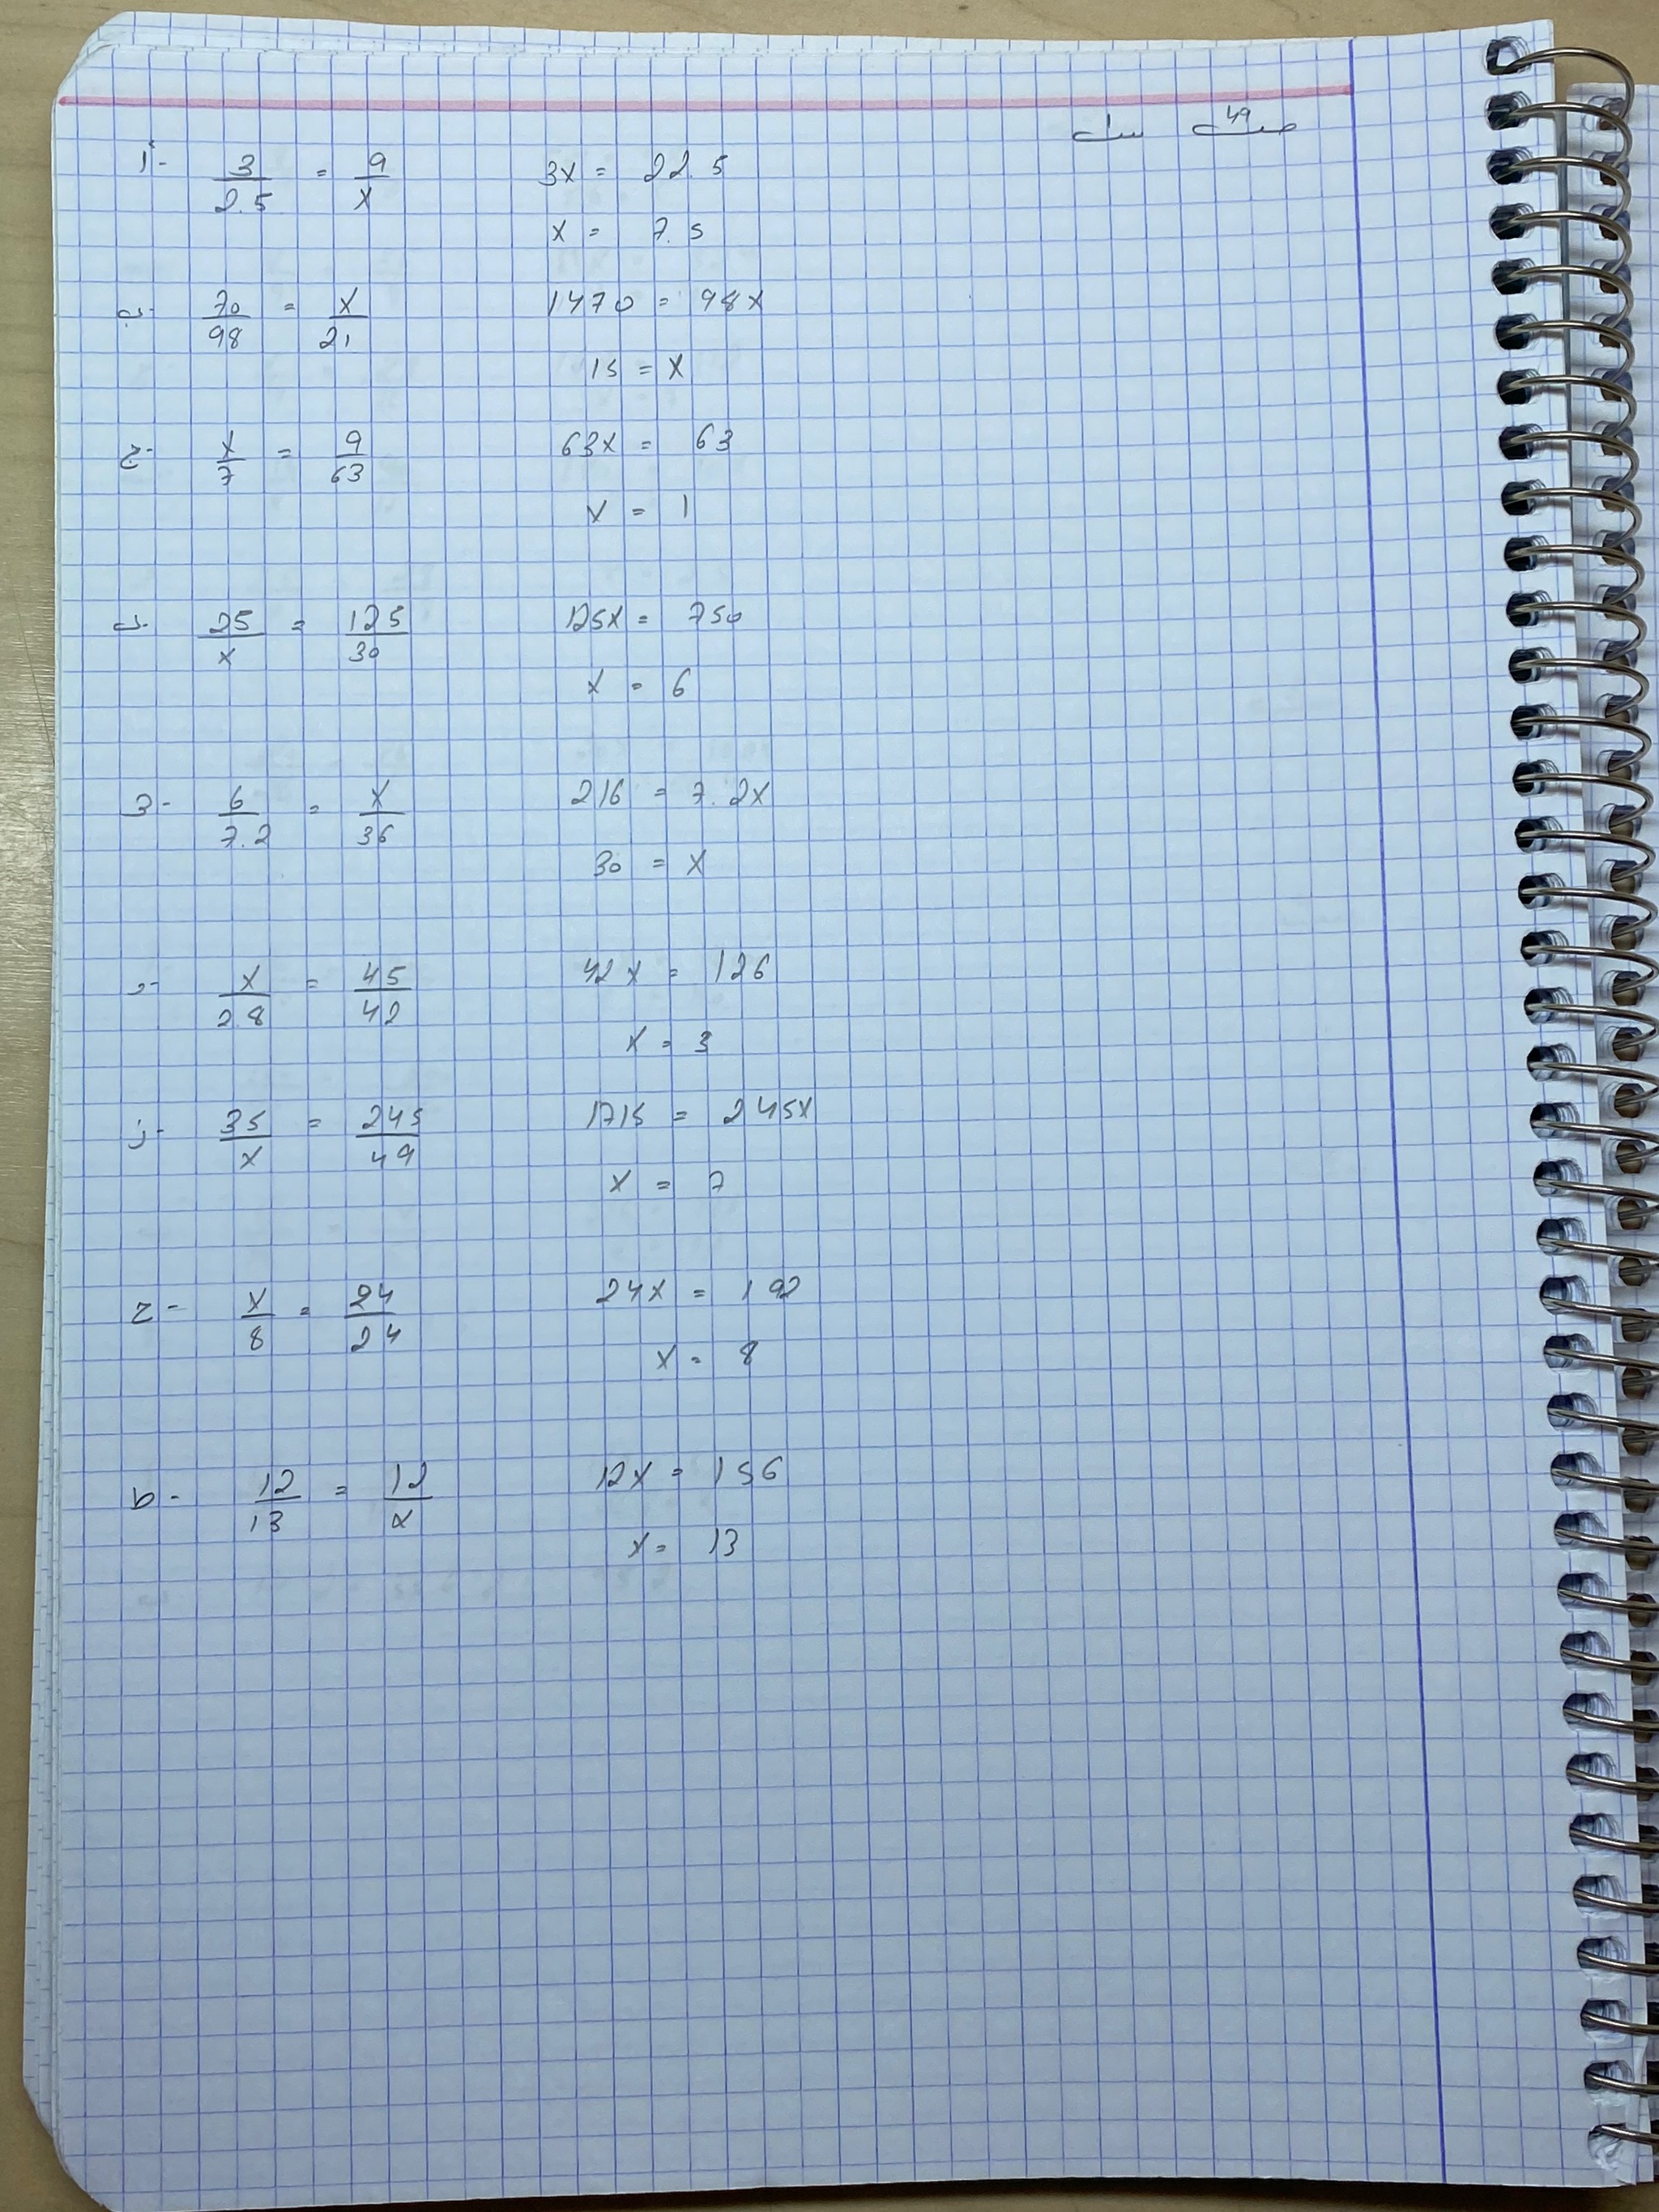 صفحة 49 س1
أ- 3/2.5 = 9/x 3x = 22.5
x = 7.5
ب- 70/98 = x/21 1470 = 98x
15 = x
ج- x/7 = 9/63 63x = 63
x = 1
د- 25/x = 125/30 125x = 750
x = 6
هـ- 6/7.2 = x/36 216 = 7.2x
30 = x
و- x/2.8 = 45/42 42x = 126
x = 3
ز- 35/x = 245/49 1715 = 245x
x = 7
ح- x/8 = 24/24 24x = 192
x = 8
ط- 12/13 = 12/x 12x = 156
x = 13